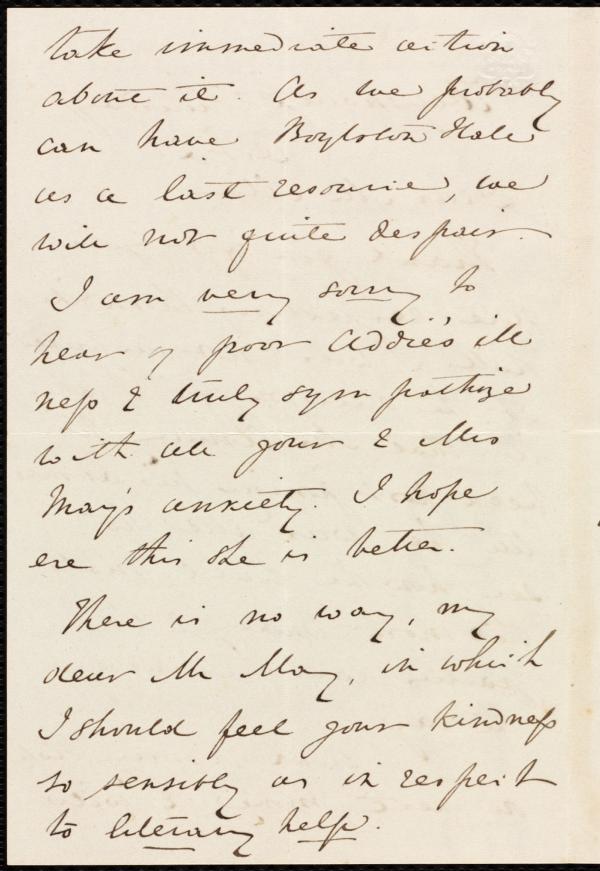 take immediate action
about it. As we probably
can have Boylston Hall
as a last resource, we
will not quite despair.
I am very sorry to
hear of poor Addie's ill
ness & truly sympathize
with all your & Mrs
May's anxiety. I hope
ere this she is better.
There is no way, my
dear Mr May, in which
I should feel your kindness
so sensibly as in respect
to literary help.